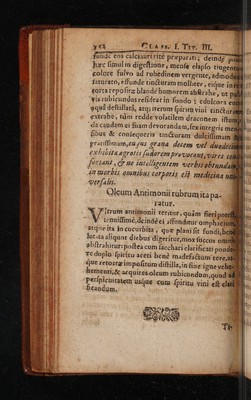 352 CLASS. I. TIT. III.
funde eos calci auri rite præparati; deinde
hæc simul in digestione, mense elapso tingentur
colore fulvo ad rubedinem vergente, admodum
saturato, effunde tincturam mollitere, eique in retorta
reposita blande humorem abstrahe, ut pulvis
vis rubicundus resideat in fundo; edulcora
aqua destillata, atq; iterum spiritu vini tincturam
extrahe, tum redde volatilem draconem istum
de caudam ei suam devorandam, sex integris mensibus
& consequeris tincturam dulcissimam
gratissimam, cujus grana decem vel duodecim
exhibita ægrotis sudorem provocant, vires confortant,
& ut intelligentem verbis absolvam,
in morbis omnibus corporis est medicina universalis.
Oleum Antimonii rubrum ita paratur.
Vitrum antimonii teritur, quàm fieri potest,
tenuissimè, deindè ei affunditur omphacium,
atque ita in cucurbita, quæ plani sit fundi, benè
lutata aliquot diebus digeritur, mox succus omnis
abstrahitur: postea cum sacchari clarificati pondere
duplo spiritu aceti benè madefactum tere, atque
retortæ impositum distilla, in fine igne vehementi,
& acquires oleum rubicundum, quod ad
perspicuitatem usque cum spiritu vini est clarificandum.